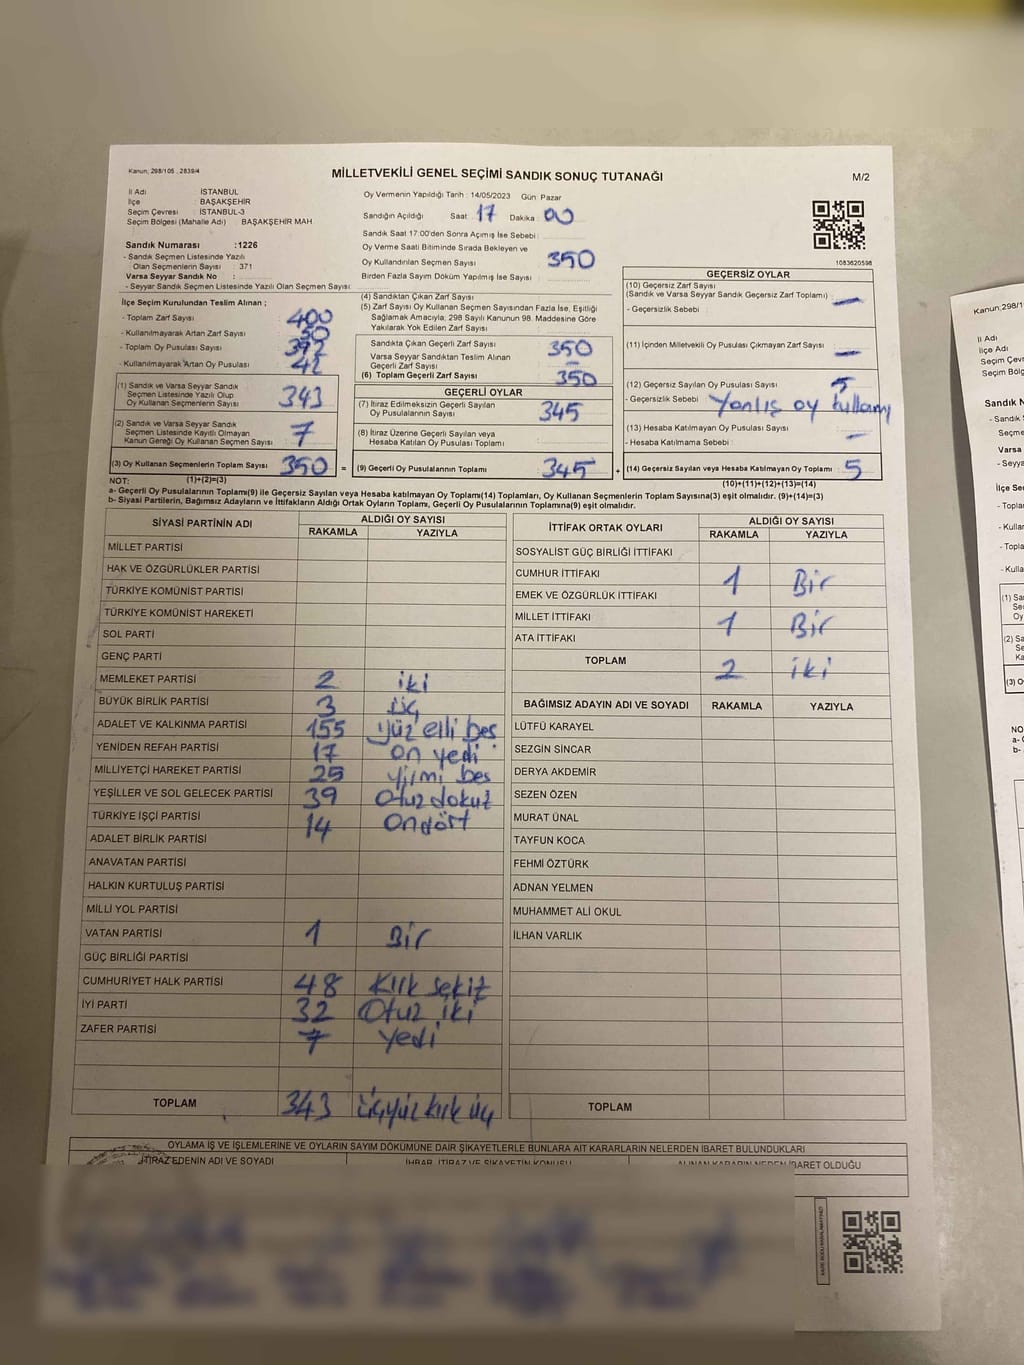 Kanun; 298/105 , 2839/4
MİLLETVEKİLİ GENEL SEÇİMİ SANDIK SONUÇ TUTANAĞI
M/2
İl Adı İSTANBUL
İlçe BAŞAKŞEHİR
Seçim Çevresi : İSTANBUL-3
Seçim Bölgesi (Mahalle Adı) BAŞAKŞEHİR MAH
Sandık Numarası :1226
- Sandık Seçmen Listesinde Yazılı
Olan Seçmenlerin Sayısı : 371
Varsa Seyyar Sandık No :
- Seyyar Sandık Seçmen Listesinde Yazılı Olan Seçmen Sayısı:
Oy Vermenin Yapıldığı Tarih : 14/05/2023 Gün: Pazar
Sandığın Açıldığı Saat: 17 Dakika: 00
Sandık Saat 17:00'den Sonra Açımış İse Sebebi :
Oy Verme Saati Bitiminde Sırada Bekleyen ve
Oy Kullandırılan Seçmen Sayısı 350
Birden Fazla Sayım Döküm Yapılmış İse Sayısı :
1083620598
İlçe Seçim Kurulundan Teslim Alınan ;
- Toplam Zarf Sayısı 400
- Kullanılmayarak Artan Zarf Sayısı 50
- Toplam Oy Pusulası Sayısı 392
- Kullanılmayarak Artan Oy Pusulası 42
(1) Sandık ve Varsa Seyyar Sandık
Seçmen Listesinde Yazılı Olup
Oy Kullanan Seçmenlerin Sayısı 343
(2) Sandık ve Varsa Seyyar Sandık
Seçmen Listesinde Kayıtlı Olmayan
Kanun Gereği Oy Kullanan Seçmen Sayısı 7
(3) Oy Kullanan Seçmenlerin Toplam Sayısı 350 =
(1)+(2)=(3)
(4) Sandıktan Çıkan Zarf Sayısı
(5) Zarf Sayısı Oy Kullanan Seçmen Sayısından Fazla İse, Eşitliği
Sağlamak Amacıyla; 298 Sayılı Kanunun 98. Maddesine Göre
Yakılarak Yok Edilen Zarf Sayısı
Sandıkta Çıkan Geçerli Zarf Sayısı 350
Varsa Seyyar Sandıktan Teslim Alınan
Geçerli Zarf Sayısı —
(6) Toplam Geçerli Zarf Sayısı 350
GEÇERLİ OYLAR
(7) İtiraz Edilmeksizin Geçerli Sayılan
Oy Pusulalarının Sayısı 345
(8) İtiraz Üzerine Geçerli Sayılan veya
Hesaba Katılan Oy Pusulası Toplamı
(9) Geçerli Oy Pusulalarının Toplamı 345 +
GEÇERSİZ OYLAR
(10) Geçersiz Zarf Sayısı
(Sandık ve Varsa Seyyar Sandık Geçersiz Zarf Toplamı) : —
- Geçersizlik Sebebi :
(11) İçinden Milletvekili Oy Pusulası Çıkmayan Zarf Sayısı: —
(12) Geçersiz Sayılan Oy Pusulası Sayısı 5
- Geçersizlik Sebebi : Yanlış oy kullanı
(13) Hesaba Katılmayan Oy Pusulası Sayısı
- Hesaba Katılmama Sebebi : —
(14) Geçersiz Sayılan veya Hesaba Katılmayan Oy Toplamı 5
(10)+(11)+(12)+(13)=(14)
NOT:
a- Geçerli Oy Pusulalarının Toplamı(9) ile Geçersiz Sayılan veya Hesaba katılmayan Oy Toplamı(14) Toplamları, Oy Kullanan Seçmenlerin Toplam Sayısına(3) eşit olmalıdır. (9)+(14)=(3)
b- Siyasi Partilerin, Bağımsız Adayların ve İttifakların Aldığı Ortak Oyların Toplamı, Geçerli Oy Pusulalarının Toplamına(9) eşit olmalıdır.
SİYASİ PARTİNİN ADI ALDIĞI OY SAYISI
RAKAMLA YAZIYLA
MİLLET PARTİSİ
HAK VE ÖZGÜRLÜKLER PARTİSİ
TÜRKİYE KOMÜNİST PARTİSİ
TÜRKİYE KOMÜNİST HAREKETİ
SOL PARTİ
GENÇ PARTİ
MEMLEKET PARTİSİ 2 iki
BÜYÜK BİRLİK PARTİSİ 3 üç
ADALET VE KALKINMA PARTİSİ 155 yüz elli beş
YENİDEN REFAH PARTİSİ 17 on yedi
MİLLİYETÇİ HAREKET PARTİSİ 25 yirmi beş
YEŞİLLER VE SOL GELECEK PARTİSİ 39 otuz dokuz
TÜRKİYE İŞÇİ PARTİSİ 14 ondört
ADALET BİRLİK PARTİSİ
ANAVATAN PARTİSİ
HALKIN KURTULUŞ PARTİSİ
MİLLİ YOL PARTİSİ
VATAN PARTİSİ 1 Bir
GÜÇ BİRLİĞİ PARTİSİ
CUMHURİYET HALK PARTİSİ 48 Kırk sekiz
İYİ PARTİ 32 Otuz iki
ZAFER PARTİSİ 7 yedi
TOPLAM 343 üçyüz kırk üç
İTTİFAK ORTAK OYLARI ALDIĞI OY SAYISI
RAKAMLA YAZIYLA
SOSYALİST GÜÇ BİRLİĞİ İTTİFAKI
CUMHUR İTTİFAKI 1 Bir
EMEK VE ÖZGÜRLÜK İTTİFAKI
MİLLET İTTİFAKI 1 Bir
ATA İTTİFAKI
TOPLAM 2 iki
BAĞIMSIZ ADAYIN ADI VE SOYADI RAKAMLA YAZIYLA
LÜTFÜ KARAYEL
SEZGİN SİNCAR
DERYA AKDEMİR
SEZEN ÖZEN
MURAT ÜNAL
TAYFUN KOCA
FEHMİ ÖZTÜRK
ADNAN YELMEN
MUHAMMET ALİ OKUL
İLHAN VARLIK
TOPLAM
OYLAMA İŞ VE İŞLEMLERİNE VE OYLARIN SAYIM DÖKÜMÜNE DAİR ŞİKAYETLERLE BUNLARA AİT KARARLARIN NELERDEN İBARET BULUNDUKLARI
İTİRAZ EDENİN ADI VE SOYADI İHBAR, İTİRAZ VE ŞİKAYETİN KONUSU ALINAN KARARIN NEDEN İBARET OLDUĞU
Kanun; 298/1
İl Adı
İlçe Adı
Seçim Çevr
Seçim Böl
Sandık N
- Sandık
Seçme
Varsa
- Seyya
İlçe Se
- Topla
- Kullan
- Topla
- Kulla
(1) Sa
Se
Oy
(2) Sa
Se
Ka
(3) O
NO
a-
b-